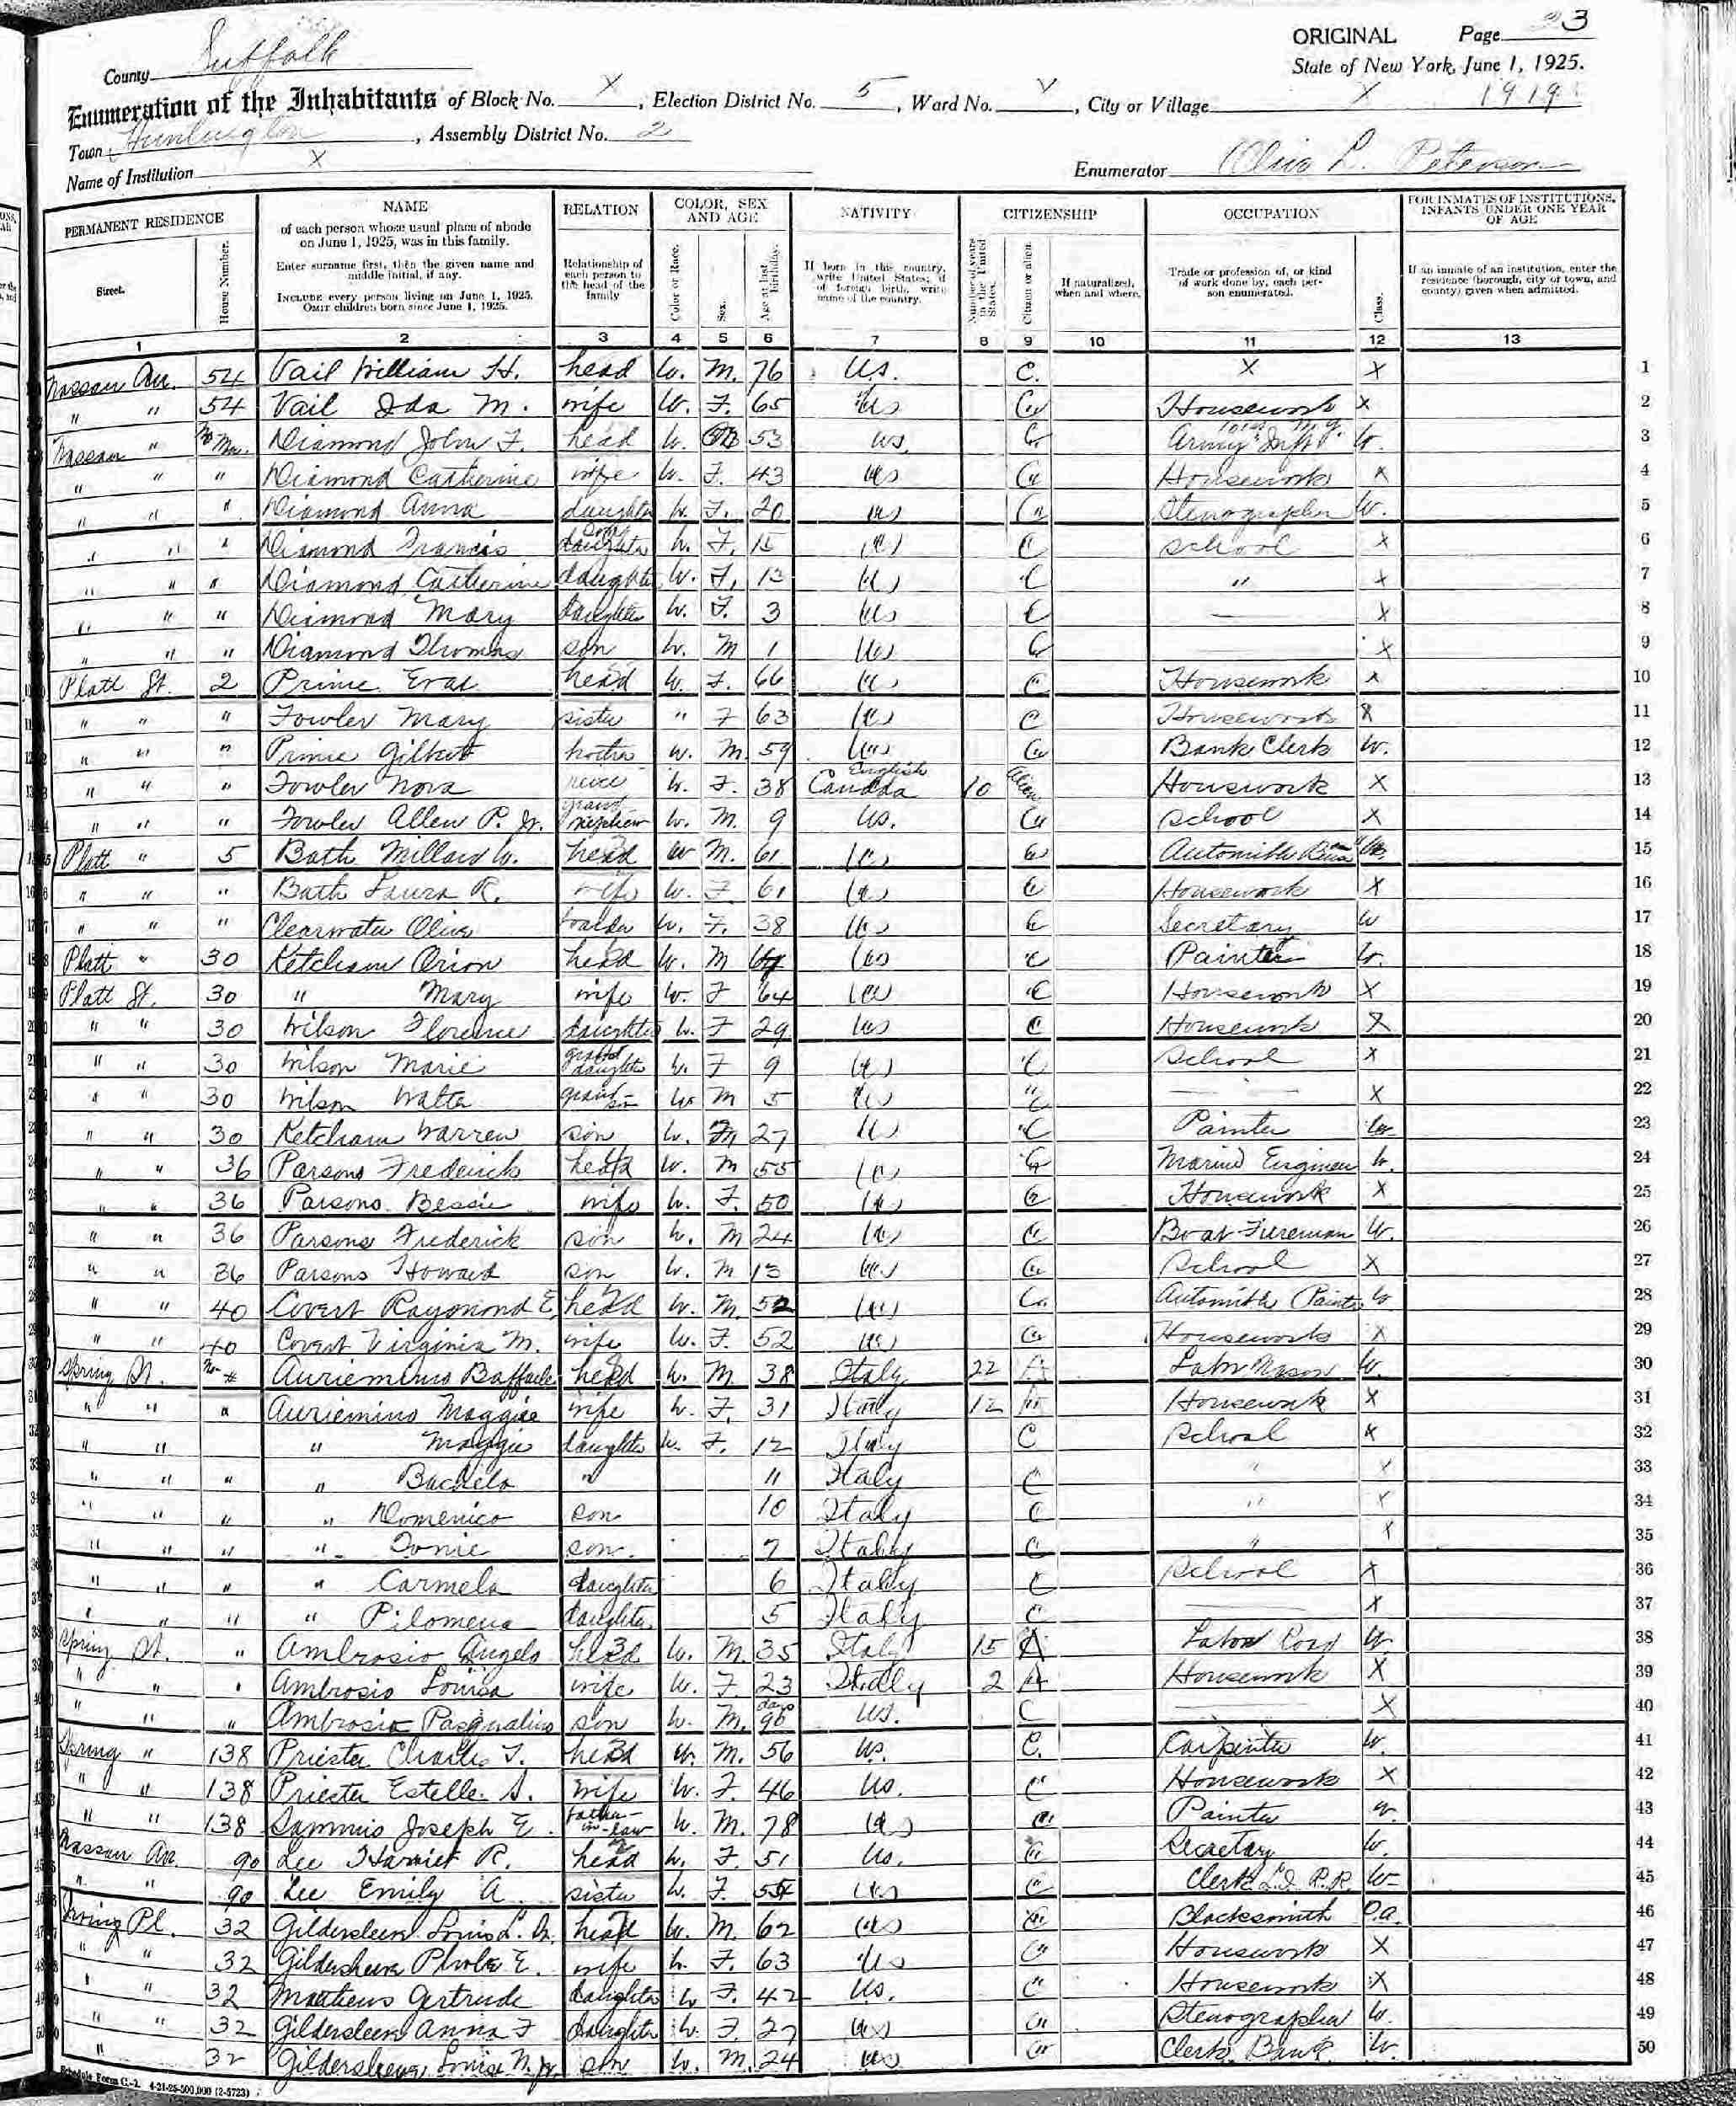 ORIGINAL Page 23
State of New York, June 1, 1925.
County Suffolk
Enumeration of the Inhabitants of Block No. X, Election District No. 5, Ward No. X, City or Village X
Town Huntington, Assembly District No. 2
Name of Institution X
Enumerator L. Peterson
PERMANENT RESIDENCE
Street. House Number. 1
NAME of each person whose usual place of abode on June 1, 1925, was in this family.
Enter surname first, then the given name and middle initial, if any.
INCLUDE every person living on June 1, 1925. OMIT children born since June 1, 1925. 2
RELATION Relationship of each person to the head of the family 3
COLOR, SEX AND AGE Color or Race. 4 Sex. 5 Age at last birthday. 6
NATIVITY If born in this country, write United States; if of foreign birth, write name of the country. 7
CITIZENSHIP Number of years in the United States. 8 Citizen or alien. 9 If naturalized, when and where. 10
OCCUPATION Trade or profession of, or kind of work done by, each person enumerated. 11 Class. 12
FOR INMATES OF INSTITUTIONS, INFANTS UNDER ONE YEAR OF AGE
If an inmate of an institution, enter the residence (borough, city or town, and county) given when admitted. 13
Nassau Av. 54 Vail William H. head W. M. 76 U.S. C. X X 1
" " 54 Vail Ida M. wife W. F. 65 US C Housework X 2
Nassau " Diamond John F. head W. M 53 US. C Army W. 3
" " " Diamond Catherine wife W. F. 43 US C Housework X 4
" " " Diamond Anna daughter W. F. 20 US C Stenographer W. 5
" " " Diamond Francis daughter W. F. 15 US C School X 6
" " " Diamond Catherine daughter W. F. 13 US C " X 7
" " " Diamond Mary daughter W. F. 3 US C — X 8
" " " Diamond Thomas son W. M 1 US C X 9
Platt St. 2 Prime head W. F. 66 US C Housework X 10
" " " Fowler Mary sister " F 63 US C Housework X 11
" " " Prime Gilbert W. M. 59 US C Bank Clerk W. 12
" " " Fowler Nora niece W. F. 38 Canada English 10 Alien Housework X 13
" " " Fowler Allen P. Jr. grand nephew W. M. 9 US. C School X 14
Platt " 5 Bath W. head W M. 61 US C 15
" " " Bath Laura R. wife W. F. 61 US C Housework X 16
" " " Clearwater Olive W. F. 38 US C Secretary W 17
Platt " 30 Ketcham Orion head W. M US C Painter W. 18
Platt St. 30 " Mary wife W. F 64 US C Housework X 19
" " 30 Wilson Florence daughter W. F 29 US C Housework X 20
" " 30 Wilson Marie grand daughter W. F 9 US C School X 21
" " 30 Wilson Walter grand son W M 5 US C — X 22
" " 30 Ketcham Warren son W. M 27 US C Painter W 23
" " 36 Parsons Frederick head W. M 55 US C Marine Engineer W. 24
" " 36 Parsons Bessie wife W. F. 50 US C Housework X 25
" " 36 Parsons Frederick son W. M 24 US C Boat Fireman W. 26
" " 36 Parsons Howard son W. M 13 US C School X 27
" " 40 Covert Raymond E. head W. M. 52 US C. Painter W 28
" " 40 Covert Virginia M. wife W. F. 52 US C Housework X 29
Spring St. Auriemino Raffaele head W. M. 38 Italy 22 A Labor Mason W. 30
" " " Auriemino Maggie wife W. F. 31 Italy 12 Housework X 31
" " " Maggie daughter W. F. 12 Italy C School X 32
" " " " " 11 Italy C " X 33
" " " " Domenico son 10 Italy C " X 34
" " " " Tonie son 7 Italy C " X 35
" " " " Carmela daughter 6 Italy C School X 36
" " " " Pilomena daughter 5 Italy C — X 37
Spring St. " Ambrosio Angelo head W. M. 35 Italy 15 A Labor Road W 38
" " " Ambrosio Louisa wife W. F. 23 Italy 2 A Housework X 39
" " " Ambrosio Pasqualino son W. M. days US. C — X 40
Spring " 138 Priester Charles T. head W. M. 56 US. C. Carpenter W. 41
" " 138 Priester Estelle S. wife W. F. 46 US. C Housework X 42
" " 138 Sammis Joseph E. father-in-law W. M. 78 US C Painter W. 43
Nassau Av. 90 Lee Harriet R. head W. F. 51 US. C Secretary W. 44
" " 90 Lee Emily A. sister W. F. US C Clerk L.I. R.R. W 45
Irving Pl. 32 Gildersleeve Louis head W. M. 62 US C Blacksmith O.A. 46
" " 32 Gildersleeve Phoebe E. wife W. F. 63 US C Housework X 47
" " 32 Matthews Gertrude daughter W F. 42 US. C Housework X 48
" " 32 Gildersleeve Anna F daughter W. F. 27 US C Stenographer W. 49
" 32 Gildersleeve Jr. son W. M. 24 US C Clerk Bank W. 50
Schedule Form C-1. 4-21-25-500,000 (2-5723)